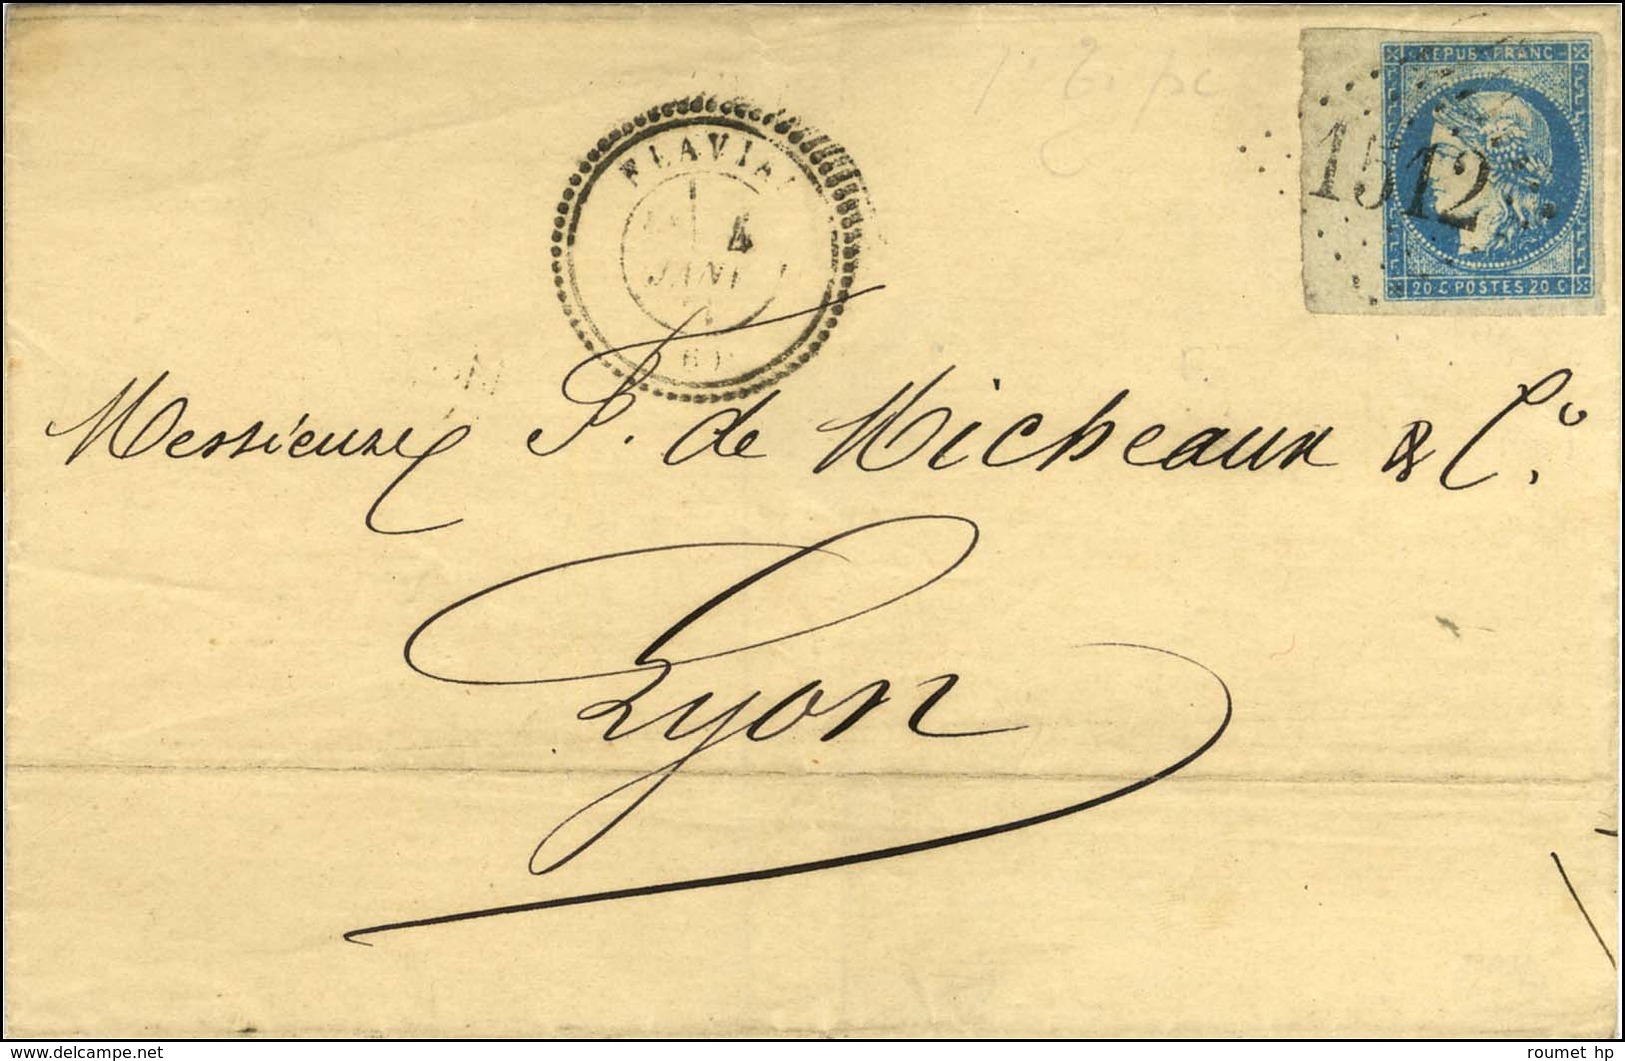 REPUB FRANC
1512
20 C POSTES 20 C
FLAVIA
4
JANV
Messieurs P. de Micheaux & Cº.
Lyon
www.delcampe.net
roumet hp